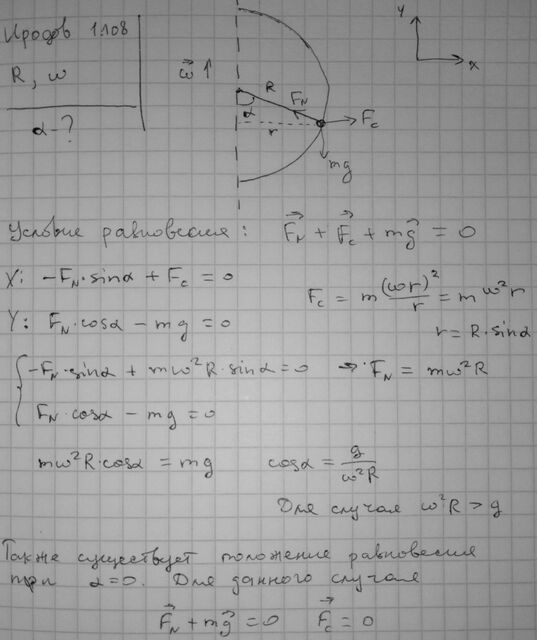 Иродов 1.108
R, ω
α - ?
ω⃗ ↑
R
F_N
α
r
F_c
mg
y
x
Условие равновесия: F⃗_N + F⃗_c + mg⃗ = 0
X: -F_N·sinα + F_c = 0
Y: F_N·cosα - mg = 0
F_c = m (ωr)²/r = m ω²r
r = R·sinα
{ -F_N·sinα + mω²R·sinα = 0 → F_N = mω²R
F_N·cosα - mg = 0
mω²R·cosα = mg cosα = g/ω²R
Для случая ω²R > g
Также существует положение равновесия
при α=0. Для данного случая
F⃗_N + mg⃗ = 0 F⃗_c = 0